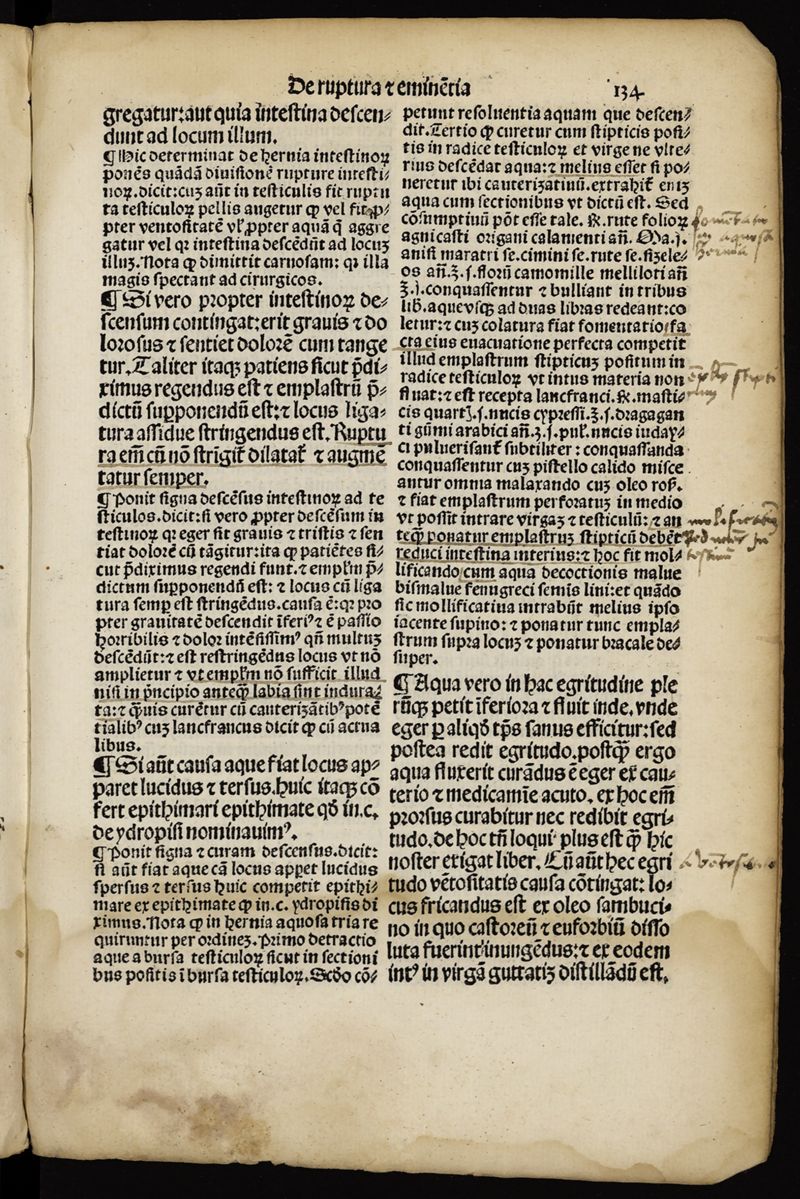 De ruptura ⁊ eminētia 134
gregatur: aut quia intestina descen⸗
dunt ad locum illum.
¶ Hic determinat de hernia intestinoꝝ
ponēs quādā diuisionē rupture intesti⸗
noꝝ. dicit: cuꝫ aūt in testiculis fit ruptu
ta testiculoꝝ pellis augetur ꝙ vel fit ꝓp⸗
pter ventositatē vl̓ ꝓpter aquā q̄ aggre
gatur vel qꝛ intestina descēdūt ad locuꝫ
illuꝫ. Nota ꝙ dimittit carnosam: qꝛ illa
magis spectant ad cirurgicos.
¶ Si vero propter intestinoꝝ de⸗
scensum contingat: erit grauis ⁊ do
lorosus ⁊ sentiet dolorē cum tange
tur. Taliter itaqꝫ patiens sicut p̄di⸗
ximus regendus est ⁊ emplastrū p̄⸗
dictū supponendū est: ⁊ locus liga⸗
tura assidue stringendus est. Ruptu
ra em̄ cū nō strīgit̄ dilatat̄ ⁊ augmē
tatur semper.
¶ Ponit signa descēsus intestinoꝝ ad te
sticulos. dicit: si vero ꝓpter descēsum in
testinoꝝ qꝛ eger fit grauis ⁊ tristis ⁊ sen
tiat dolorē cū tāgitur: ita ꝙ patiētes si⸗
cut p̄diximus regendi sunt. ⁊ empl̓m p̄⸗
dictum supponendū est: ⁊ locus cū liga
tura semꝑ est strīgēdus. causa ē: qꝛ pro
pter grauitatē descendit īferiꝰ ⁊ ē passio
horribilis ⁊ dolor intēsissimꝰ qn̄ multuꝫ
descēdūt: ⁊ est restringēdus locus vt nō
amplietur ⁊ vt empl̓m nō sufficit illud
nisi in p̄ncipio anteqꝫ labia sint indura⸗
ta: ⁊ q̄uis curētur cū cauterizātibꝰ potē
tialibꝰ cuꝫ lancfrancus dicit ꝙ cū actua
libus.
¶ Si aūt causa aque fiat locus ap⸗
paret lucidus ⁊ tersus. huic itaqꝫ cō
fert epithimari epithimate qd̓ in. c.
de ydropisi nominauimꝰ.
¶ Ponit signa ⁊ curam descensus. dicit:
si aūt fiat aque cā locus appet lucidus
spersus ⁊ tersus huic competit epithi⸗
mare ex epithimate ꝙ in. c. ydropisis di
ximus. Nota ꝙ in hernia aquosa tria re
quiruntur per ordineꝫ. Primo detractio
aque a bursa testiculoꝝ sicut in sectioni
bus positis ī bursa testiculoꝝ. Scd̓o cō⸗
petunt resoluentia aquam que descen⸗
dit. Tertio ꝙ curetur cum stipticis posi⸗
tis in radice testiculoꝝ et virge ne vlte⸗
rius descēdat aqua: ⁊ melius esset si po⸗
neretur ibi cauterizatiuū. extrahit̄ eniꝫ
aqua cum sectionibus vt dictū est. Sed
cōsumptiuū pōt esse tale. ℞. rute folioꝝ
agnicasti origani calamenti añ. Ma. j.
anisi maratri se. cimini se. rute se. fizele⸗
os añ. ʒ. ſ. florū camomille melliloti añ
ʒ. j. conquassentur ⁊ bulliant in tribus
lib̓. aque vsqꝫ ad duas libras redeant: co
letur: ⁊ cuꝫ colatura fiat fomentatio. fa
cta eius euacuatione perfecta competit
illud emplastrum stipticuꝫ positum in
radice testiculoꝝ vt intus materia non
fluat: ⁊ est recepta lancfranci. ℞. masti⸗
cis quart̄. ſ. nucis cypressi. ʒ. ſ. dragagan
ti gūmi arabici añ. ʒ. ſ. pul̓. nucis iuday⸗
ci puluerisant̄ subtiliter: conquassanda
conquassentur cuꝫ pistello calido misce
antur omnia malaxando cuꝫ oleo ros̓.
⁊ fiat emplastrum perforatuꝫ in medio
vt possit intrare virgaꝫ ⁊ testiculū: ⁊ an
teqꝫ ponatur emplastruꝫ stipticū debēt
reduci intestina interius: ⁊ hoc fit mol⸗
lificando cum aqua decoctionis malue
bismalue fenugreci semis lini: et quādo
sic mollificatiua intrabūt melius ipso
iacente supino: ⁊ ponatur tunc empla⸗
strum supra locuꝫ ⁊ ponatur bracale de⸗
super.
¶ Aqua vero in hac egritudine ple
rūqꝫ petit īferiora ⁊ fluit inde. vnde
eger ꝑ aliqd̓ tp̄s sanus efficitur: sed
postea redit egritudo. postqꝫ ergo
aqua fluxerit curādus ē eger ex cau⸗
terio ⁊ medicamīe acuto. ex hoc em̄
prorsus curabitur nec redibit egri⸗
tudo. de hoc tn̄ loqui plus est qꝫ hic
noster exigat liber. Cū aūt hec egri
tudo vētositatis causa cōtingat: lo⸗
cus fricandus est ex oleo sambuci⸗
no in quo castoreū ⁊ euforbiū disso
luta fuerint inungēdus: ⁊ ex eodem
intꝰ in virgā guttatiꝫ distillādū est.